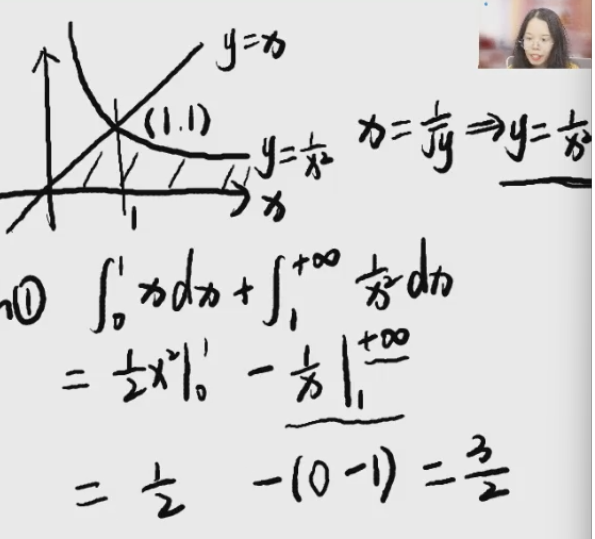 y=x
(1.1)
y=1/x²
x=1/√y⇒y=1/x²
x
1
① ∫₀¹ x dx + ∫₁⁺∞ 1/x² dx
= 1/2 x² |₀¹ - 1/x |₁⁺∞
= 1/2 -(0-1) = 3/2